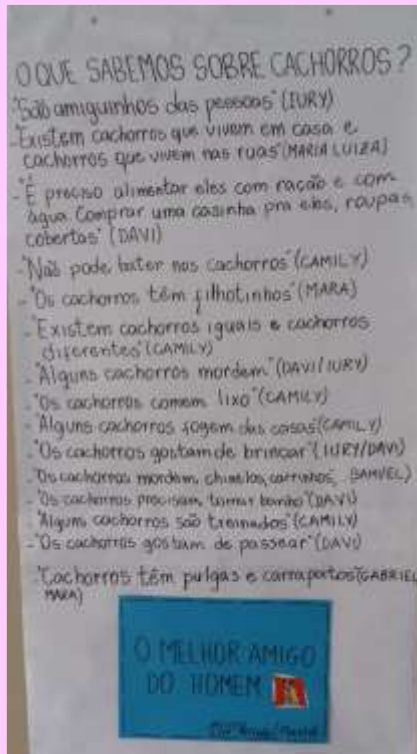 O QUE SABEMOS SOBRE CACHORROS?
"São amiguinhos das pessoas" (IURY)
-"Existem cachorros que vivem em casa e
cachorros que vivem nas ruas" (MARIA LUIZA)
-"É preciso alimentar eles com ração e com
água. Comprar uma casinha pra eles, roupas,
cobertas" (DAVI)
-"Não pode bater nos cachorros" (CAMILY)
-"Os cachorros têm filhotinhos" (MARA)
-"Existem cachorros iguais e cachorros
diferentes" (CAMILY)
-"Alguns cachorros mordem" (DAVI/IURY)
-"Os cachorros comem lixo" (CAMILY)
-"Alguns cachorros fogem das casas" (CAMILY)
-"Os cachorros gostam de brincar" (IURY/DAVI)
-"Os cachorros mordem, chinelos, carrinhos, SAMUEL)
-"Os cachorros precisam tomar banho" (DAVI)
-"Alguns cachorros são treinados" (CAMILY)
-"Os cachorros gostam de passear" (DAVI)
-"Cachorros têm pulgas e carrapatos" (GABRIEL
MARA)
O MELHOR AMIGO
DO HOMEM